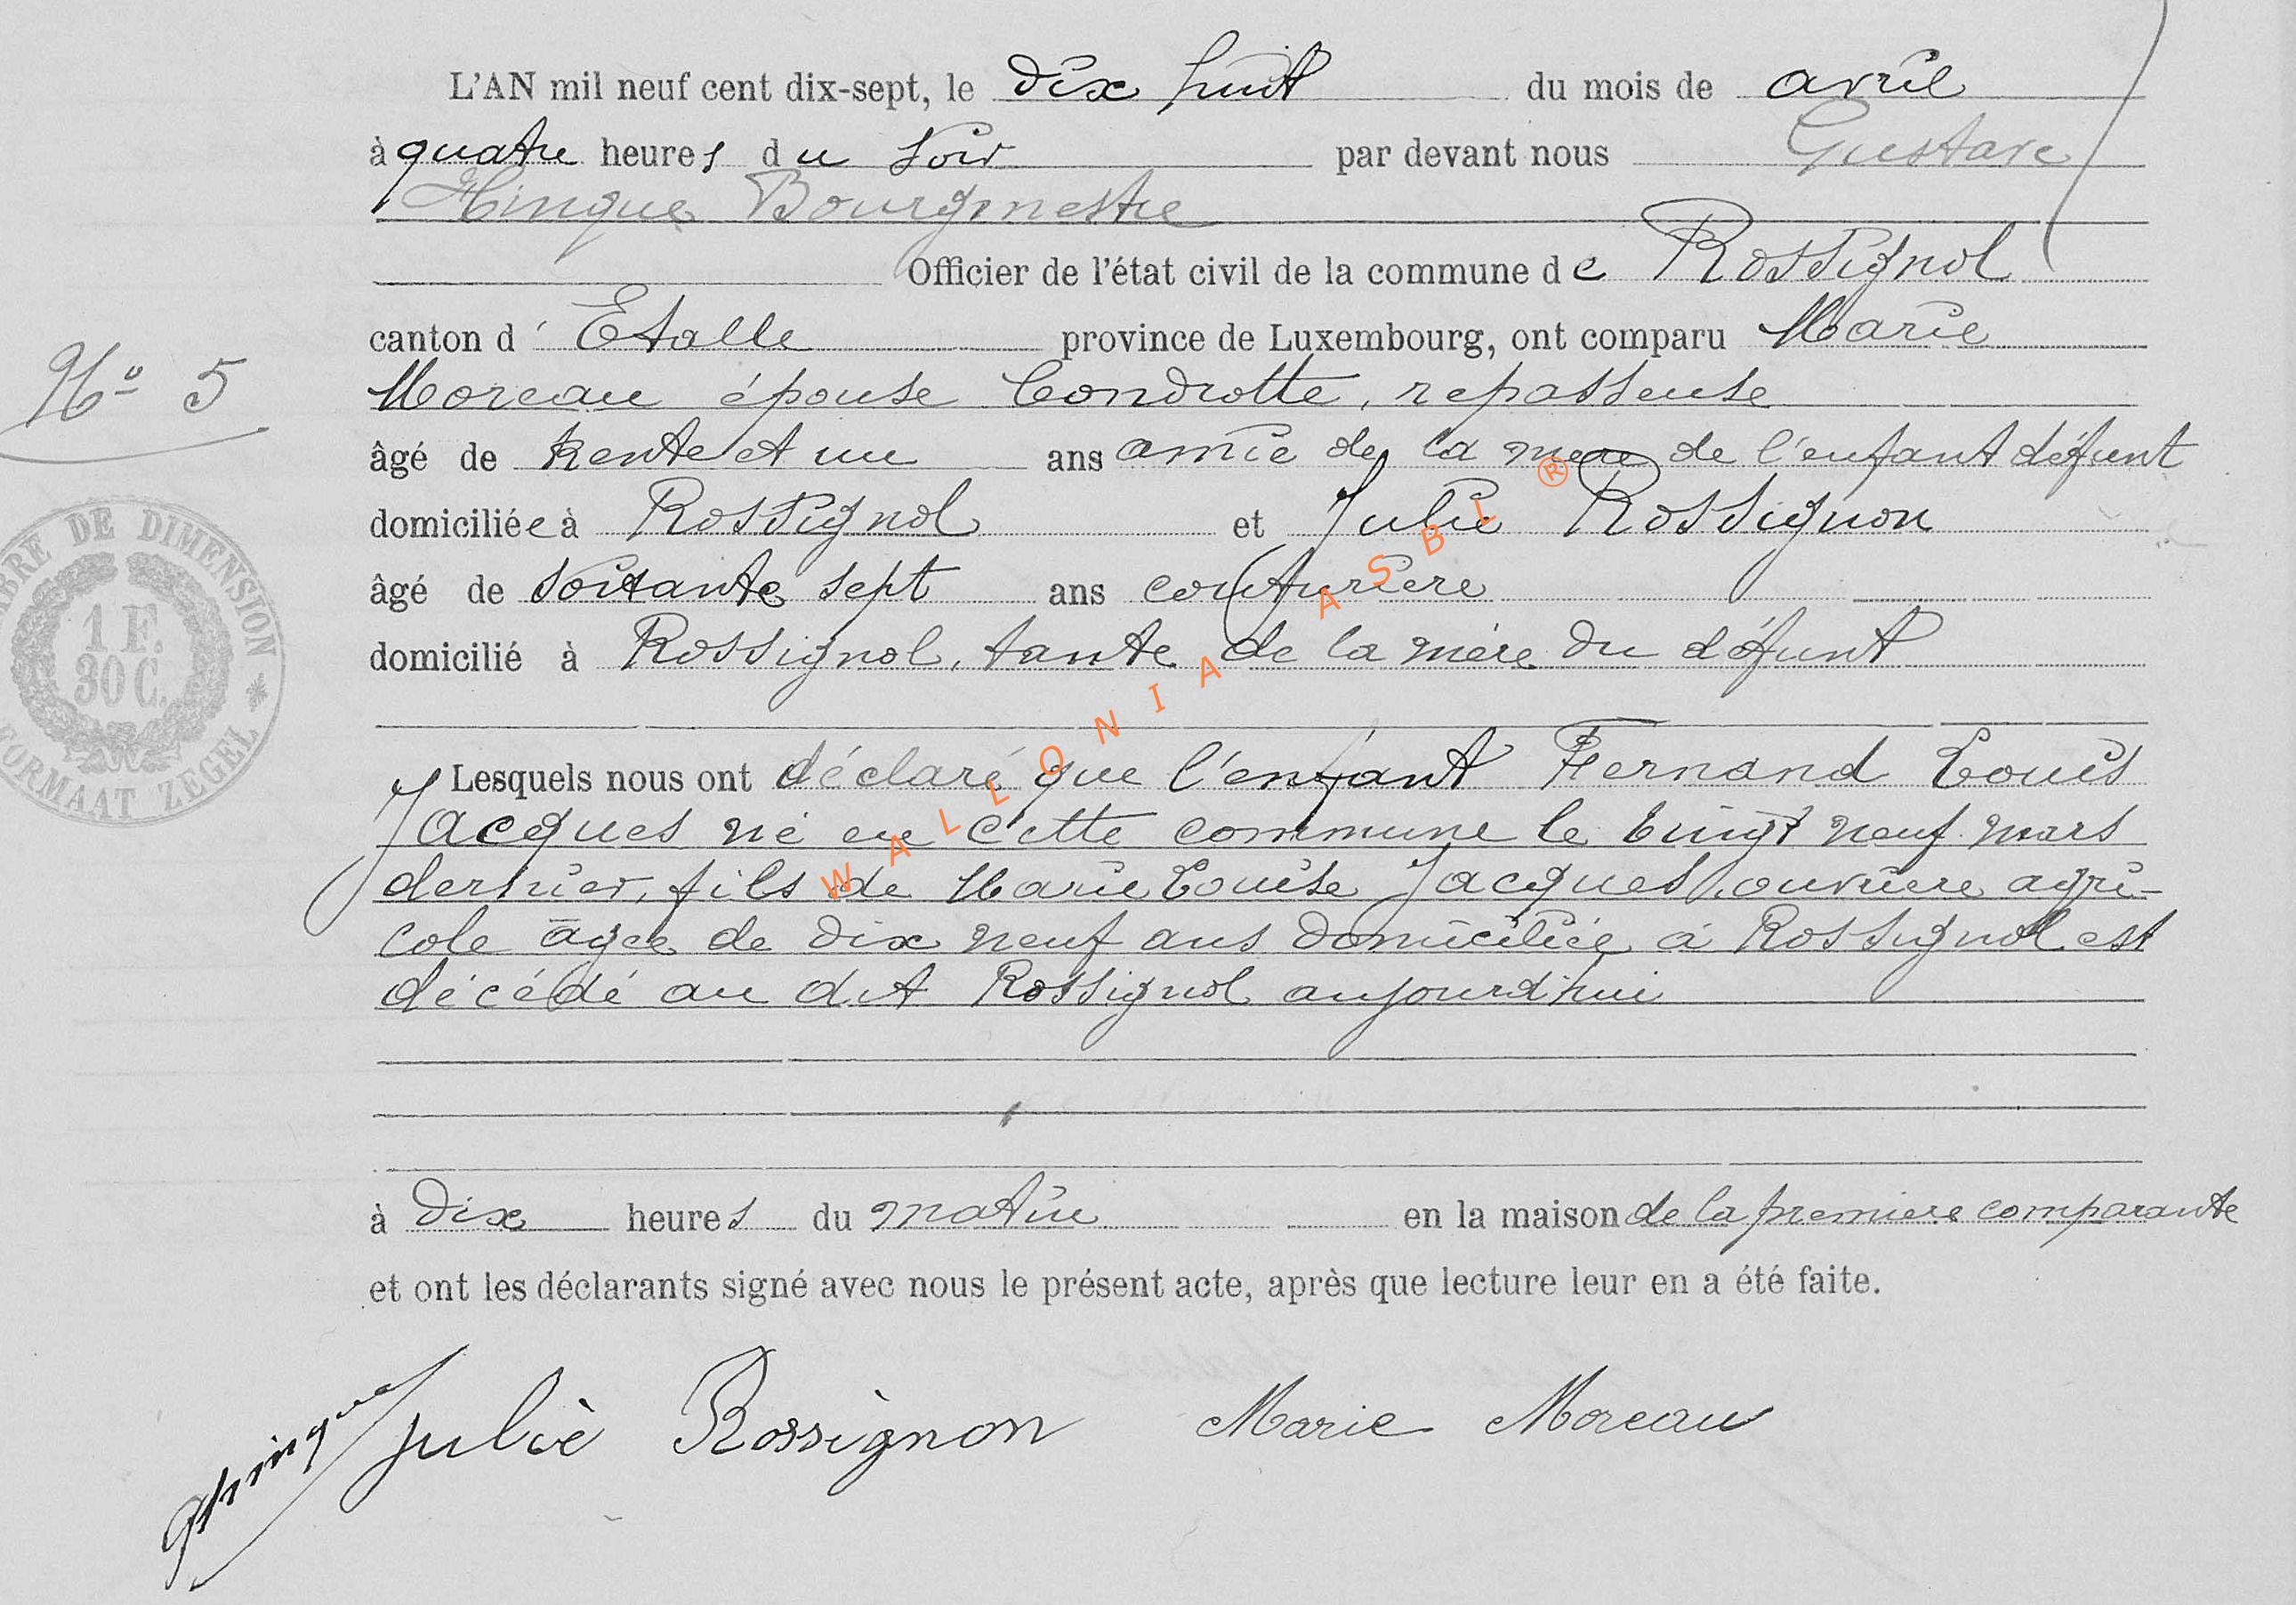 L'AN mil neuf cent dix-sept, le dix huit du mois de avril
à quatre heures du soir par devant nous Gustave
Hinque Bourgmestre
Officier de l'état civil de la commune de Rossignol
canton d' Etalle province de Luxembourg, ont comparu Marie
N° 5
Moreau épouse Condrotte, repasseuse
âgé de trente et un ans amie de la mère de l'enfant défunt
domiciliée à Rossignol et Julie Rossignon
âgé de soixante sept ans couturière
domicilié à Rossignol, tante de la mère du défunt
TIMBRE DE DIMENSION
1 F.
30 C.
FORMAAT ZEGEL
Lesquels nous ont déclaré que l'enfant Fernand Louis
Jacques né en cette commune le vingt neuf mars
dernier, fils de Marie Louise Jacques, ouvrière agri-
cole âgée de dix neuf ans domiciliée à Rossignol est
décédé au dit Rossignol aujourd'hui
à dix heures du matin en la maison de la première comparante
et ont les déclarants signé avec nous le présent acte, après que lecture leur en a été faite.
GHinque Julie Rossignon Marie Moreau
WALLONIA ASBL ®